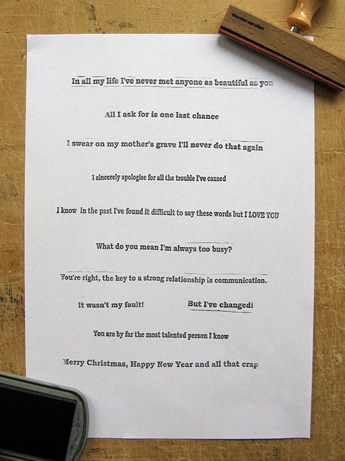 In all my life I've never met anyone as beautiful as you
All I ask for is one last chance
I swear on my mother's grave I'll never do that again
I sincerely apologise for all the trouble I've caused
I know in the past I've found it difficult to say these words but I LOVE YOU
What do you mean I'm always too busy?
You're right, the key to a strong relationship is communication.
It wasn't my fault!
But I've changed!
You are by far the most talented person I know
Merry Christmas, Happy New Year and all that crap